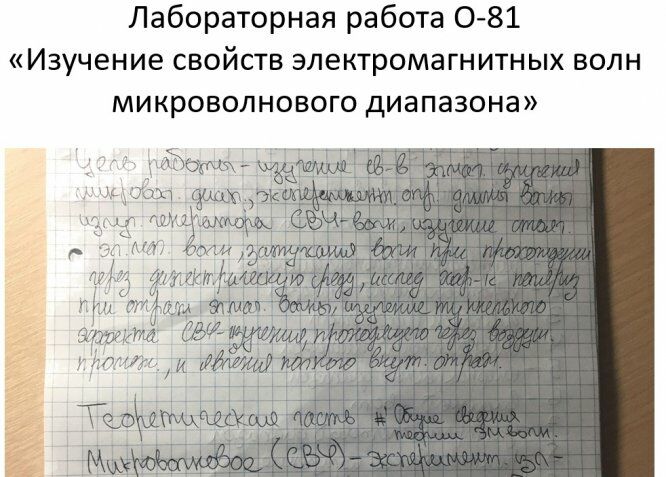 Лабораторная работа О-81
«Изучение свойств электромагнитных волн
микроволнового диапазона»
Цель работы - изучение св-в эл.маг. излучения
микровол. диап., эксперимент. опр. длины волны
излуч. генератора СВЧ-волн, изучение
эл.маг. волн, затухания волн при прохождении
через диэлектрическую среду, исслед. хар-к
при отраж. эл.маг. волны, изучение туннельного
эффекта СВЧ-излучения, проходящего через воздуш.
промеж., и явления полного внут. отраж.
Теоретическая часть # Общие сведения
теории ЭМ волн.
Микроволновое (СВЧ) - эксперимент. изл-